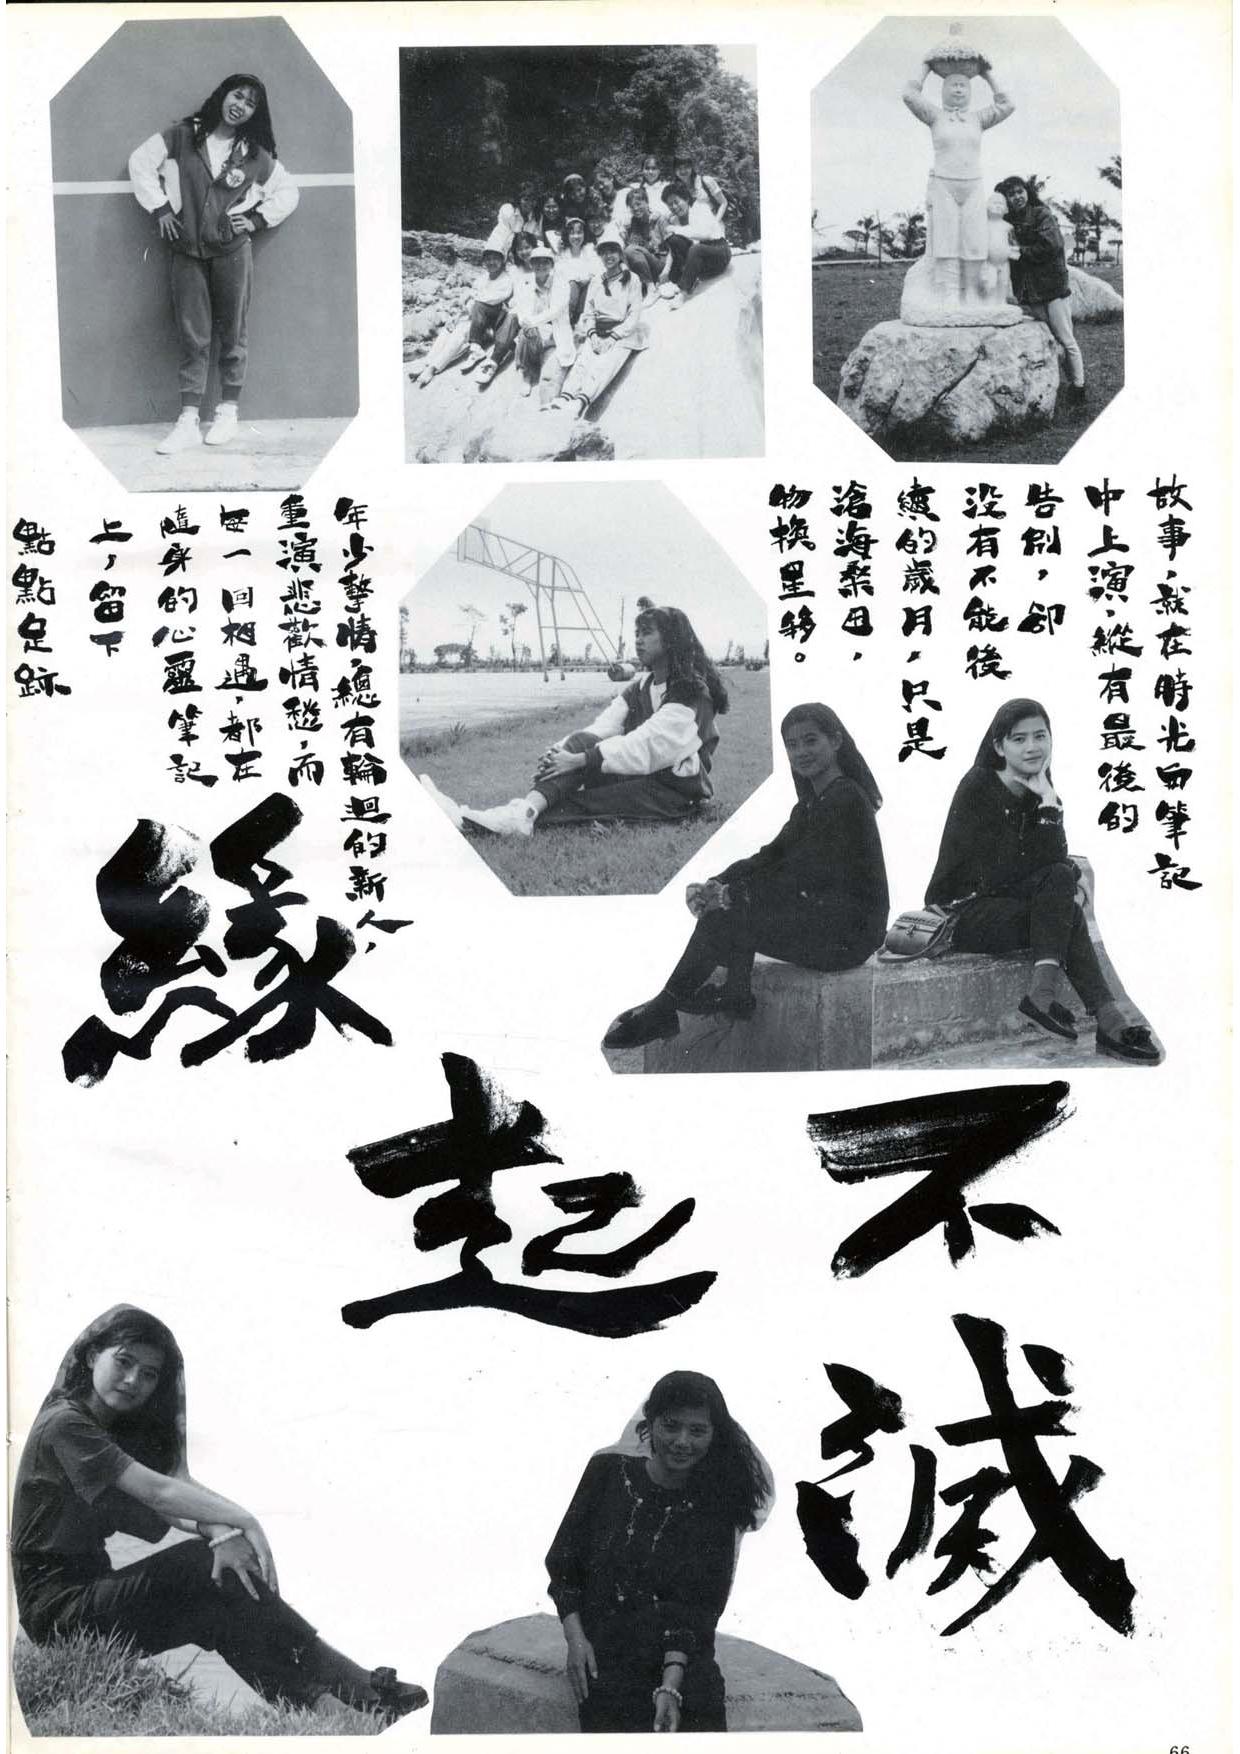 故事，就在時光筆記
中上演，縱有最後的
告別，卻
沒有不能後
續的歲月，只是
滄海桑田，
物換星移。
年少摯情，總有輪迴的新人，
重演悲歡情愁，而
每一回相遇，都在
隨身的心靈筆記
上，留下
點點足跡
緣
起
不
滅
66